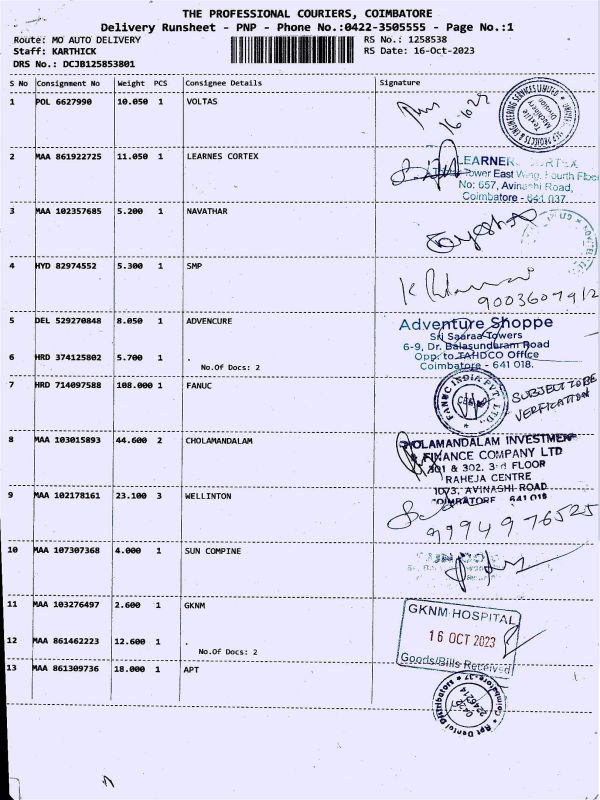 THE PROFESSIONAL COURIERS, COIMBATORE
Delivery Runsheet - PNP - Phone No.:0422-3505555 - Page No.:1
Route: MO AUTO DELIVERY RS No.: 1258538
Staff: KARTHICK RS Date: 16-Oct-2023
DRS No.: DCJB125853801
S No Consignment No Weight PCS Consignee Details Signature
1 POL 6627990 10.050 1 VOLTAS
Textile
Machinery
Division
2 MAA 861922725 11.050 1 LEARNES CORTEX
Tower East Wing, Fourth Floor
No: 657, Avinashi Road,
Coimbatore - 641 037.
3 MAA 102357685 5.200 1 NAVATHAR
4 HYD 82974552 5.300 1 SMP
9003607912
5 DEL 529270848 8.050 1 ADVENCURE
Adventure Shoppe
Sri Saaraa Towers
6-9, Dr. Balasundaram Road
Opp: to TAHDCO Office
Coimbatore - 641 018.
6 HRD 374125802 5.700 1 .
No.Of Docs: 2
7 HRD 714097588 108.000 1 FANUC
FANUC INDIA PVT. LTD.
SUBJECT TO BE
VERFICATION
8 MAA 103015893 44.600 2 CHOLAMANDALAM
CHOLAMANDALAM INVESTMEN
FINANCE COMPANY LTD
301 & 302, 3rd FLOOR
RAHEJA CENTRE
1073, AVINASHI ROAD
COIMBATORE 641 018
9 MAA 102178161 23.100 3 WELLINTON
9994976525
10 MAA 107307368 4.000 1 SUN COMPINE
11 MAA 103276497 2.600 1 GKNM
GKNM HOSPITAL
16 OCT 2023
Goods/Bills Received
12 MAA 861462223 12.600 1 .
No.Of Docs: 2
13 MAA 861309736 18.000 1 APT
Apt Dental Distributors